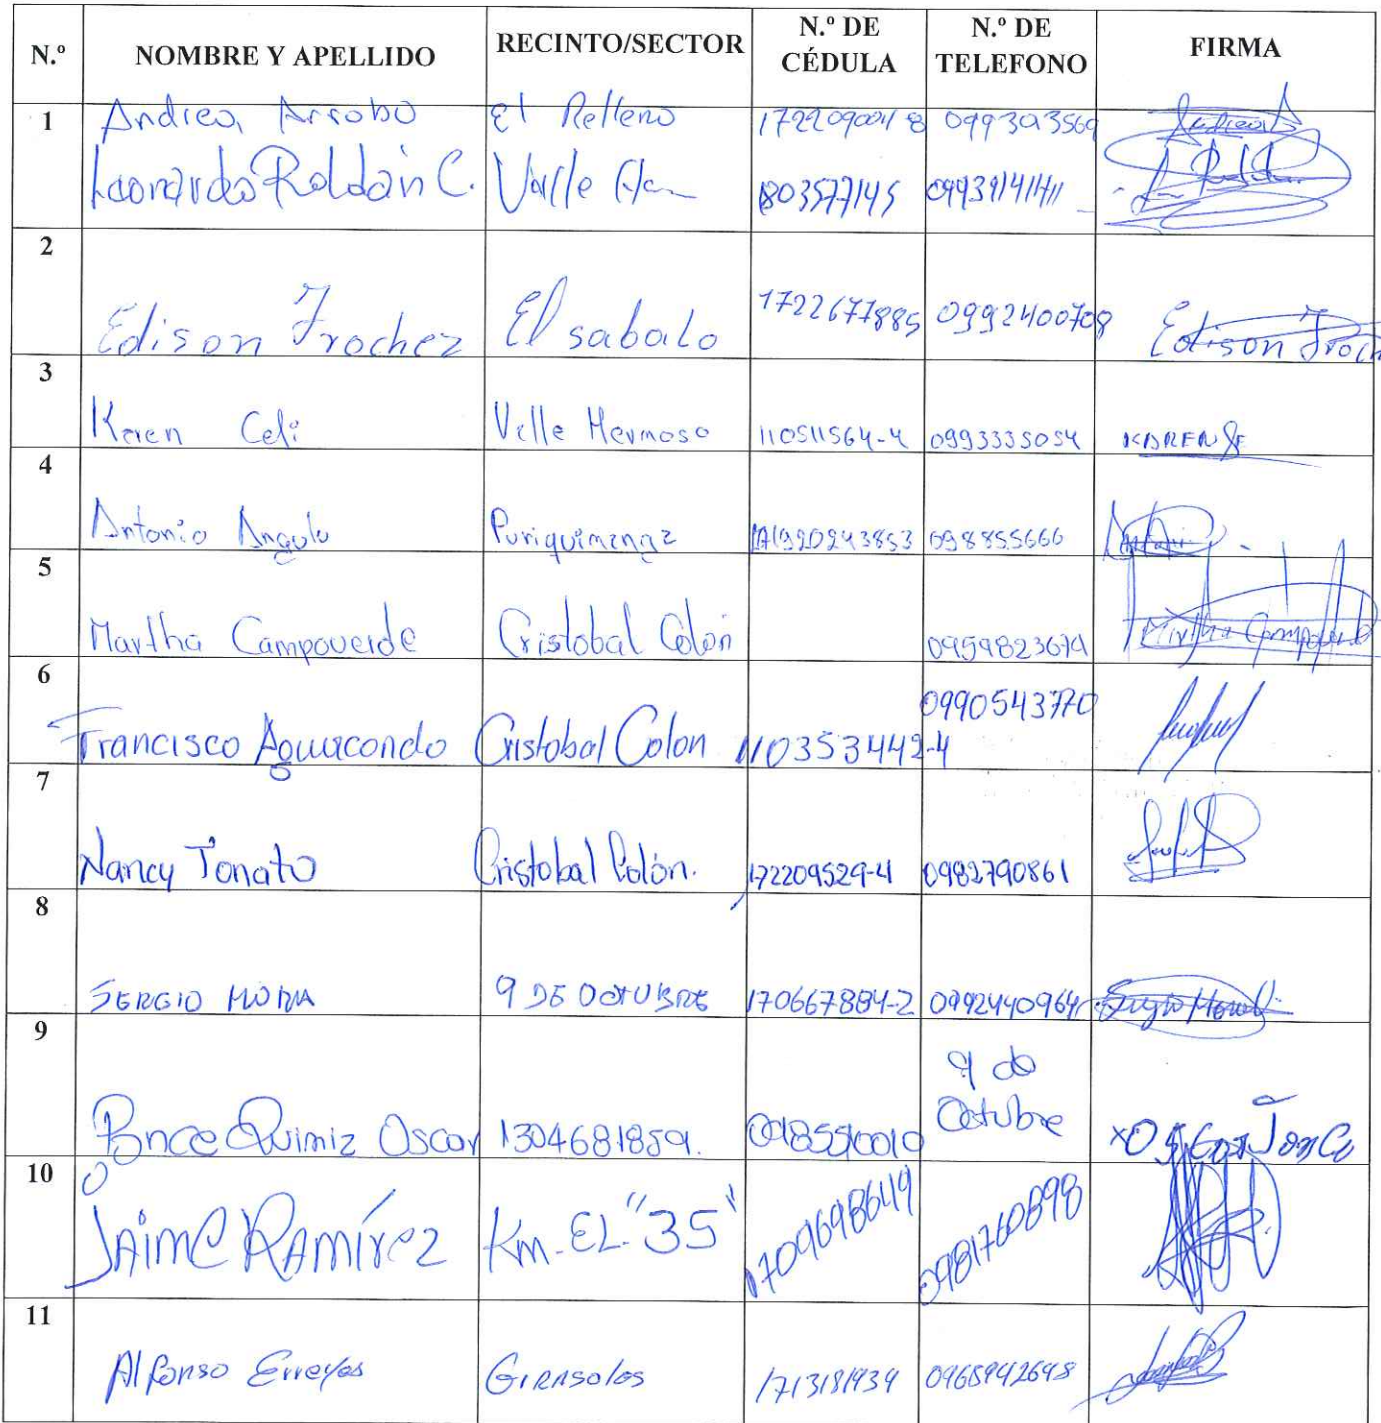 N.º NOMBRE Y APELLIDO RECINTO/SECTOR N.º DE CÉDULA N.º DE TELEFONO FIRMA
1 Andrea Arrobo El Relleno 099303569
Leonardo Roldán C. Valle 1803577145
2 Edison Trochez El sabalo 1722677885 0992400708 Edison Troch
3 Karen Celi Valle Hermoso 110511564-4 0993335054 KAREN
4 Antonio Angulo 0920243853 098855666
5 Martha Campoverde Cristobal Colón Martha Campoverde
6 Francisco Aguacondo Cristobal Colon 110353442-4 0990543770
7 Nancy Tonato Cristobal Colón. 172209529-4 0982790861
8 SERGIO MORA 9 DE OCTUBRE 170667884-2 0992440964 Sergio Mora
9 Ponce Quimiz Oscar 1304681859. 0985510010 9 de Octubre Oscar Ponce
10 JAIME RAMÍREZ Km. EL "35" 1709698649 0981760898
11 Alfonso Erreyes GIRASOLES 1713181939 0968942648